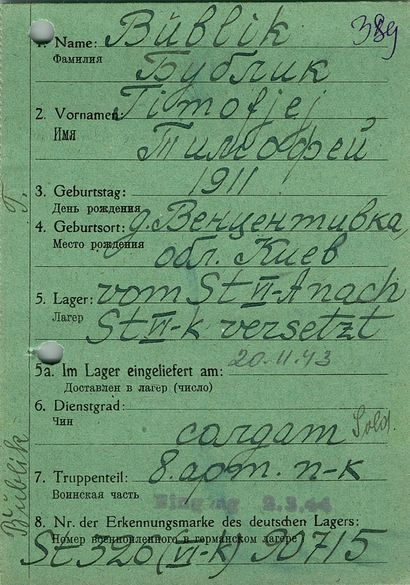 389
1. Name: Bŭblik
Фамилия Бублик
2. Vorname: Timofjej,
Имя Тимофей
3. Geburtstag: 1911
День рождения
4. Geburtsort: д. Венцентивка,
Место рождения обл. Киев
5. Lager: vom St VI-A nach
Лагер St VI-K versetzt
5a. Im Lager eingeliefert am: 20.11.43
Доставлен в лагер (число)
6. Dienstgrad:
Чин солдат Sold.
7. Truppenteil: 8. арт. п-к
Воинская часть
Eingang 2.3.44
8. Nr. der Erkennungsmarke des deutschen Lagers:
Номер военнопленного в германском лагере
St 326 (VI-K) 90715
Bŭblik
T.